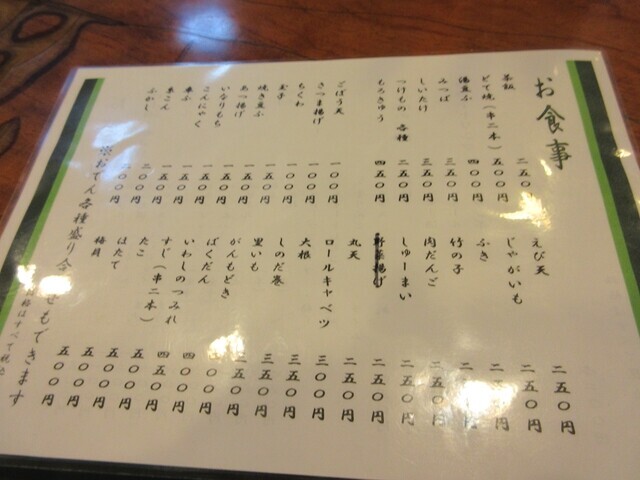 お食事
茶飯 二五〇
どて焼(串二本) 五〇〇円
湯豆ふ 四〇〇円
みつば 三五〇円
しいたけ 三五〇円
つけもの各種 二五〇円
もろきゅう 四五〇円
ごぼう天 一〇〇円
さつま揚げ 一〇〇円
ちくわ 一〇〇円
玉子 一〇〇円
焼き豆ふ 一五〇円
あつ揚げ 一五〇円
いなりもち 一五〇円
こんにゃく 一五〇円
車ふ 一五〇円
糸こん 二〇〇円
ふかし 二〇〇円
えび天 二五〇円
じゃがいも 二五〇円
ふき 二五〇円
竹の子 二
肉だんご 二五〇円
しゅーまい 二五〇円
野菜揚げ 二五〇円
丸天 二五〇円
ロールキャベツ 三〇〇円
大根 三五〇円
しのだ巻 三五〇円
里いも 二五〇円
がんもどき 〇〇円
ばくだん 〇〇円
いわしのつみれ 四〇〇円
すじ(串二本) 四五〇円
たこ 五〇〇円
はたて 五〇〇円
梅貝 五〇〇円
五〇〇円
※おでん各種盛り合せもできます
格はすべて税込